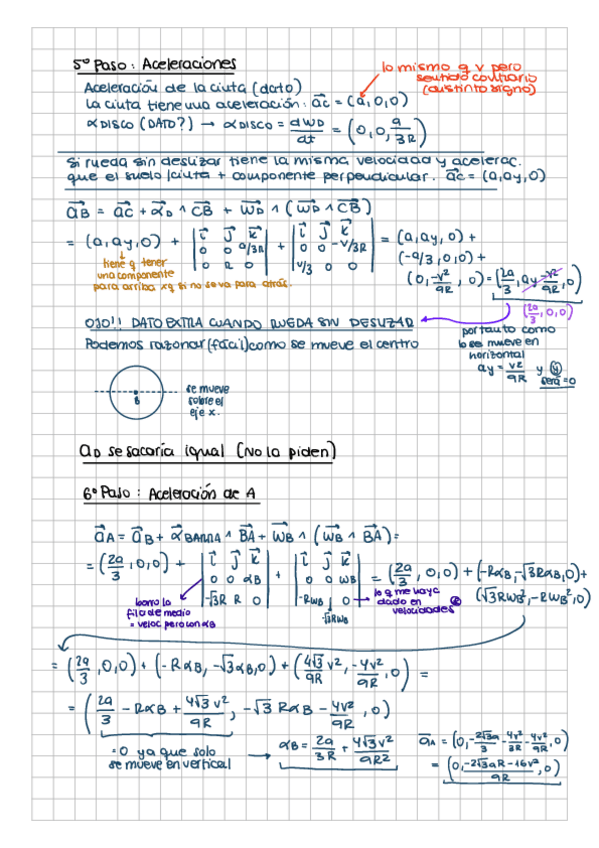 5º Paso: Aceleraciones
lo mismo q v pero
sentido contrario
(distinto signo)
Aceleración de la cinta (dato)
La cinta tiene una aceleración: a⃗c = (a,0,0)
α DISCO (DATO?) → α DISCO = dWD/dt = (0, 0, a/3R)
Si rueda sin deslizar tiene la misma velocidad y acelerac.
que el suelo/cinta + componente perpendicular. a⃗c = (a,ay,0)
a⃗B = a⃗c + α⃗D ∧ C⃗B + W⃗D ∧ (W⃗D ∧ C⃗B)
= (a,ay,0) + |i⃗ j⃗ k⃗; 0 0 a/3R; 0 R 0| + |i⃗ j⃗ k⃗; 0 0 -v/3R; v/3 0 0| = (a,ay,0) +
(-a/3,0,0) +
(0, -v²/9R, 0) = (2a/3, ay - v²/9R, 0)
tiene q tener
una componente
para arriba xq si no se va para atrás.
(2a/3, 0, 0)
OJO!! DATO EXTRA CUANDO RUEDA SIN DESLIZAR
Podemos razonar (fácil) como se mueve el centro
por tanto como
lo se mueve en
horizontal
ay = v²/9R y y
será = 0
B
se mueve
sobre el
eje x.
aD se sacaría igual (No la piden)
6º Paso: Aceleración de A
a⃗A = a⃗B + α⃗BARRA ∧ B⃗A + W⃗B ∧ (W⃗B ∧ B⃗A) =
= (2a/3, 0, 0) + |i⃗ j⃗ k⃗; 0 0 αB; -√3R R 0| + |i⃗ j⃗ k⃗; 0 0 WB; -RWB -√3RWB 0| = (2a/3, 0, 0) + (-RαB, -√3RαB, 0) +
(√3RWB², -RWB², 0)
borro la
fila de medio
= veloc. pero con αB
lo q me haya
dado en
velocidades
= (2a/3, 0, 0) + (-RαB, -√3αB, 0) + (4√3/9R v², -4v²/9R, 0) =
= (2a/3 - RαB + 4√3v²/9R, -√3RαB - 4v²/9R, 0)
= 0 ya que solo
se mueve en vertical
→ αB = 2a/3R + 4√3v²/9R²
a⃗A = (0, -2√3a/3 - 4v²/3R - 4v²/9R, 0)
= (0, -2√3aR - 16v²/9R, 0)